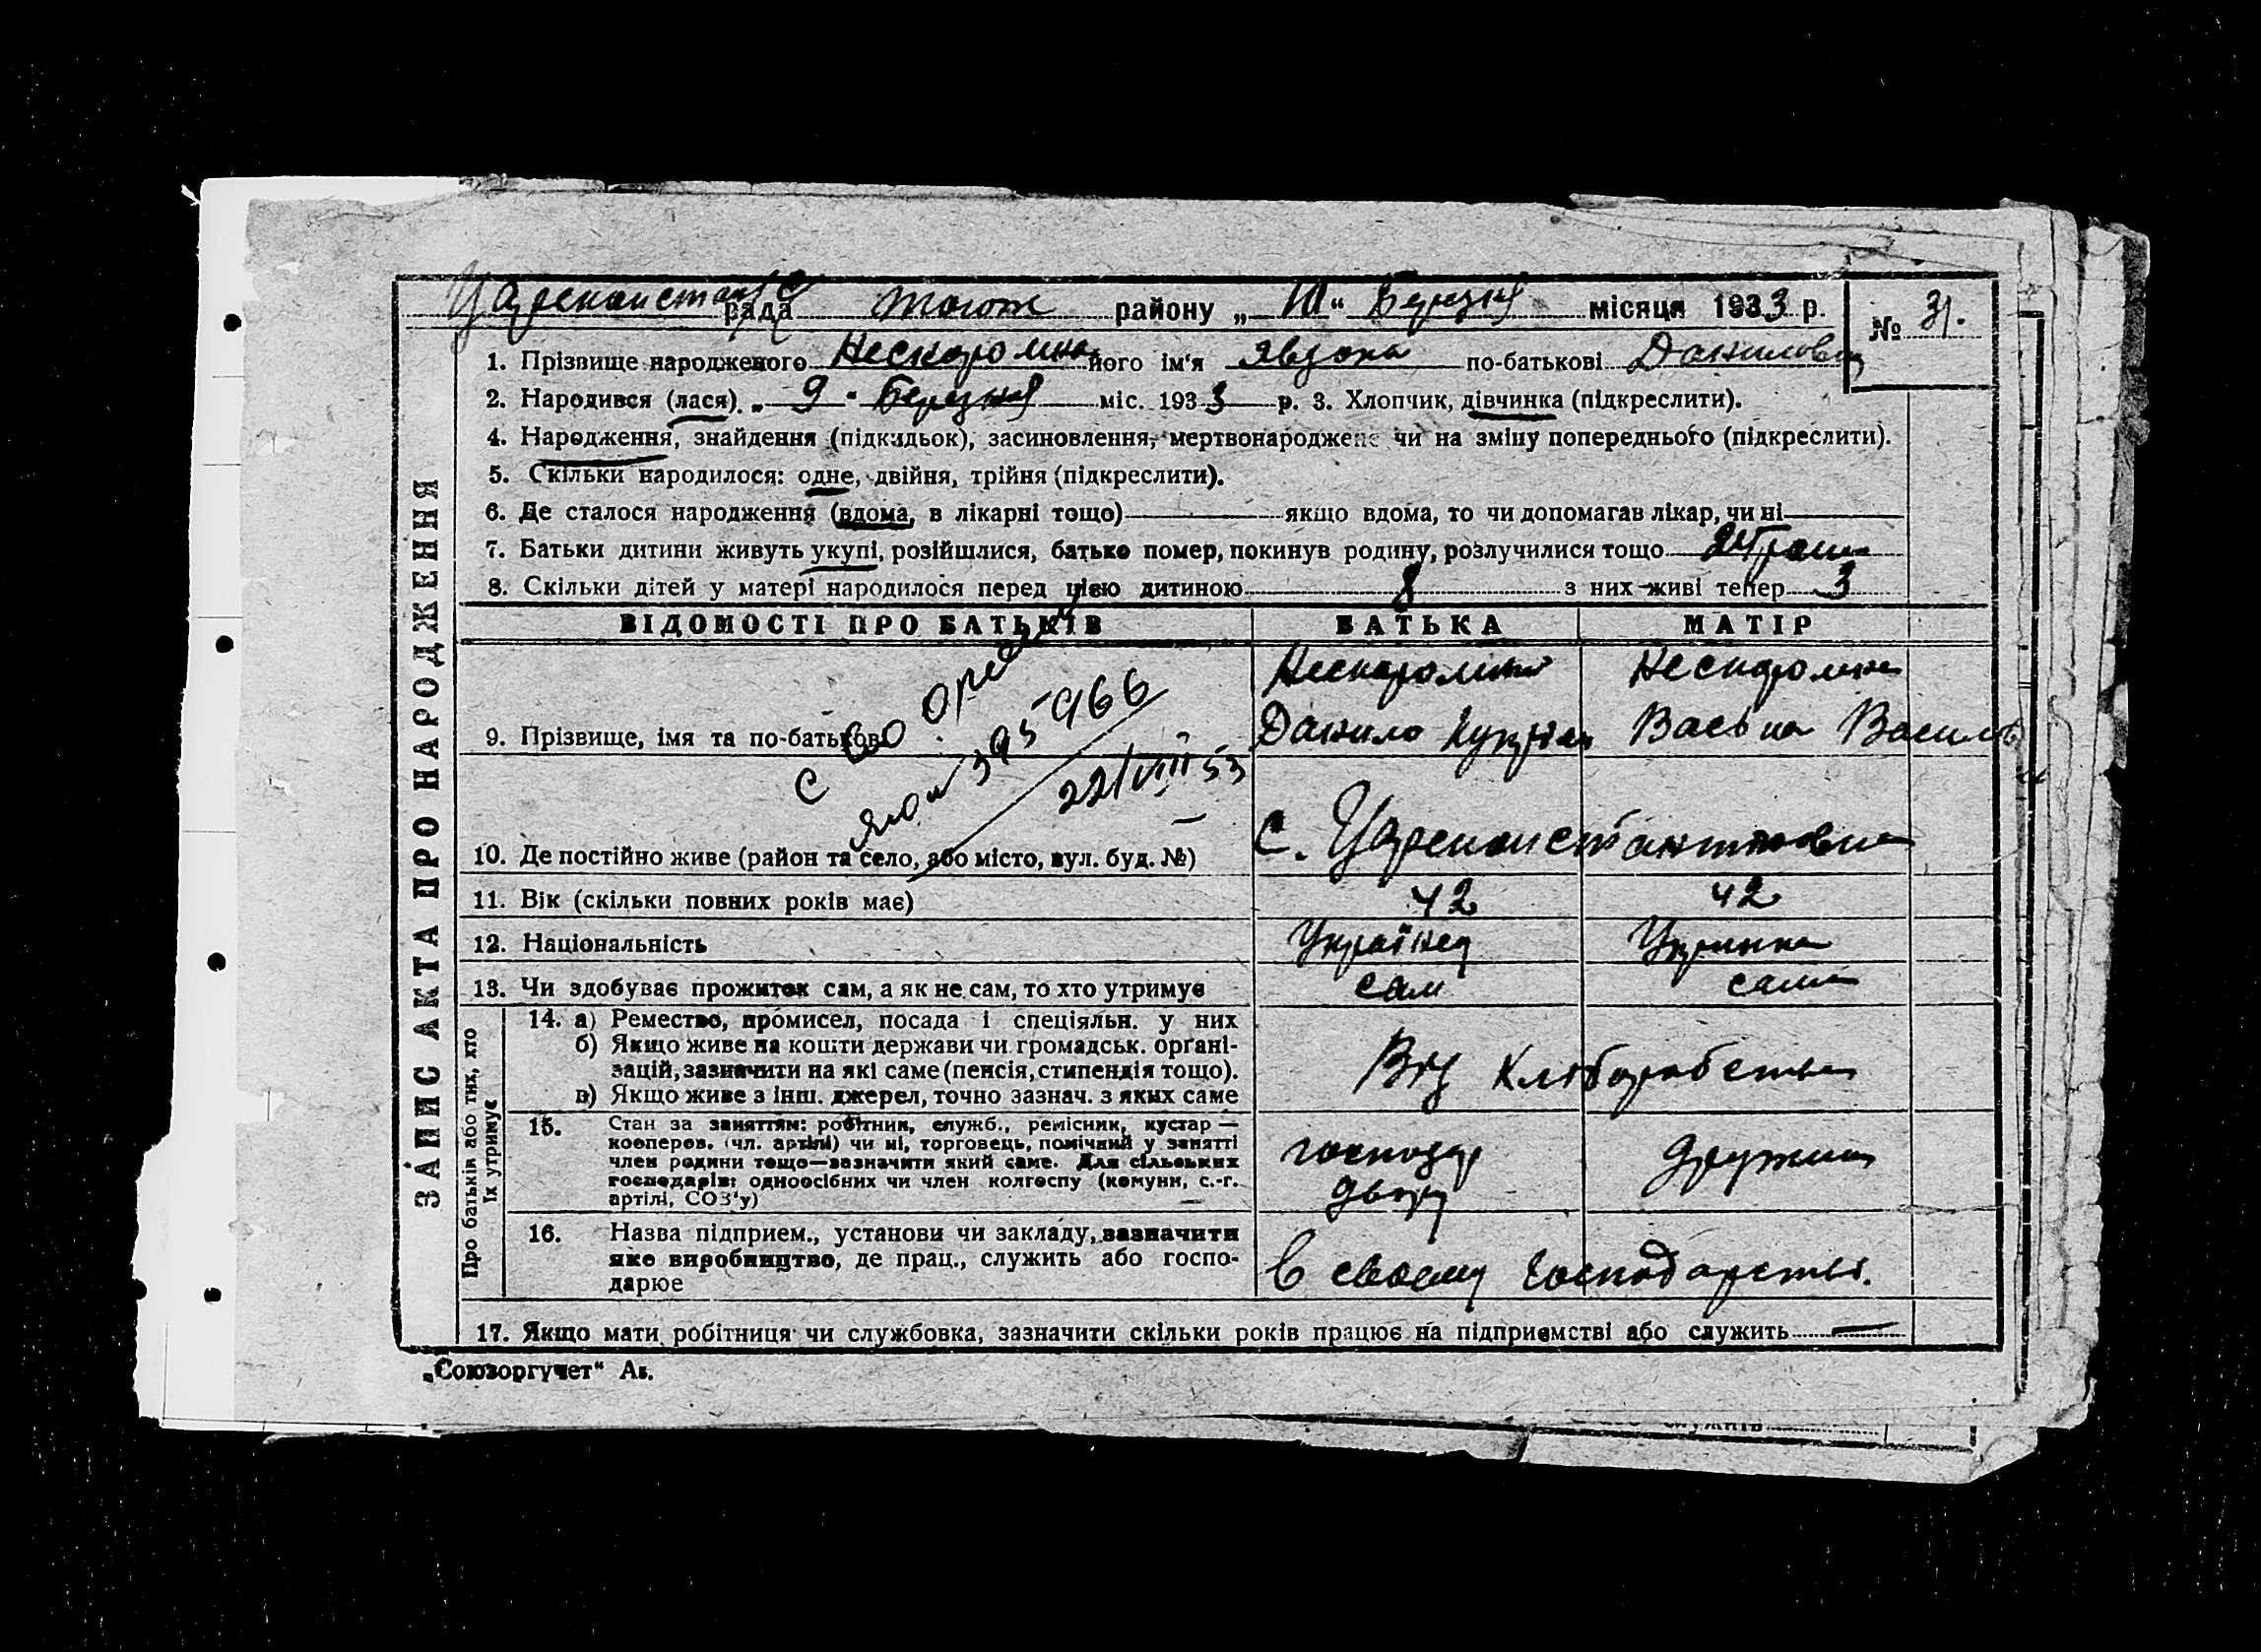 ЗАПИС АКТА ПРО НАРОДЖЕННЯ
рада тогож району „ 10 “ Березня місяця 1933 р. № 31.
1. Прізвище народженого Нескоромна його ім‘я Явдоха по-батькові Даниловна
2. Народився (лася) „ 9 “ Березня міс. 1933 р. 3. Хлопчик, дівчинка (підкреслити).
4. Народження, знайдення (підкидьок), засиновлення, мертвонароджене чи на зміну попереднього (підкреслити).
5. Скільки народилося: одне, двійня, трійня (підкреслити).
6. Де сталося народження (вдома, в лікарні тощо) якщо вдома, то чи допомагав лікар, чи ні
7. Батьки дитини живуть укупі, розійшлися, батько помер, покинув родину, розлучилися тощо
8. Скільки дітей у матері народилося перед цією дитиною 8 з них живі тепер 3
ВІДОМОСТІ ПРО БАТЬКІВ БАТЬКА МАТІР
9. Прізвище, імя та по-батькові
Нескоромний Нескоромна
Данило Василь
с
395966
22/VIII 53
10. Де постійно живе (район та село, або місто, вул. буд. №) С. Цареконстантновка
11. Вік (скільки повних років має) 42 42
12. Національність Українец Украинка
13. Чи здобуває прожиток сам, а як не сам, то хто утримує сам сама
Про батьків або тих, хто їх утримує
14. а) Ремество, промисел, посада і спеціяльн. у них
б) Якщо живе на кошти держави чи громадськ. орґані-
зацій, зазначити на які саме (пенсія, стипендія тощо).
в) Якщо живе з інш. джерел, точно зазнач. з яких саме
Від Хліборобства
15. Стан за заняттям: робітник, служб., ремісник, кустар —
кооперов. (чл. артілі) чи ні, торговець, помічний у занятті
член родини тощо—зазначити який саме. Для сільських
господарів: одноосібних чи член колгоспу (комуни, с.-г.
артілі, СОЗ‘у)
господар двору дружина
16. Назва підприєм., установи чи закладу, зазначити
яке виробництво, де прац., служить або госпо-
дарює
в своему господарстві.
17. Якщо мати робітниця чи службовка, зазначити скільки років працює на підприємстві або служить —
„Союзоргучет“ Ав.